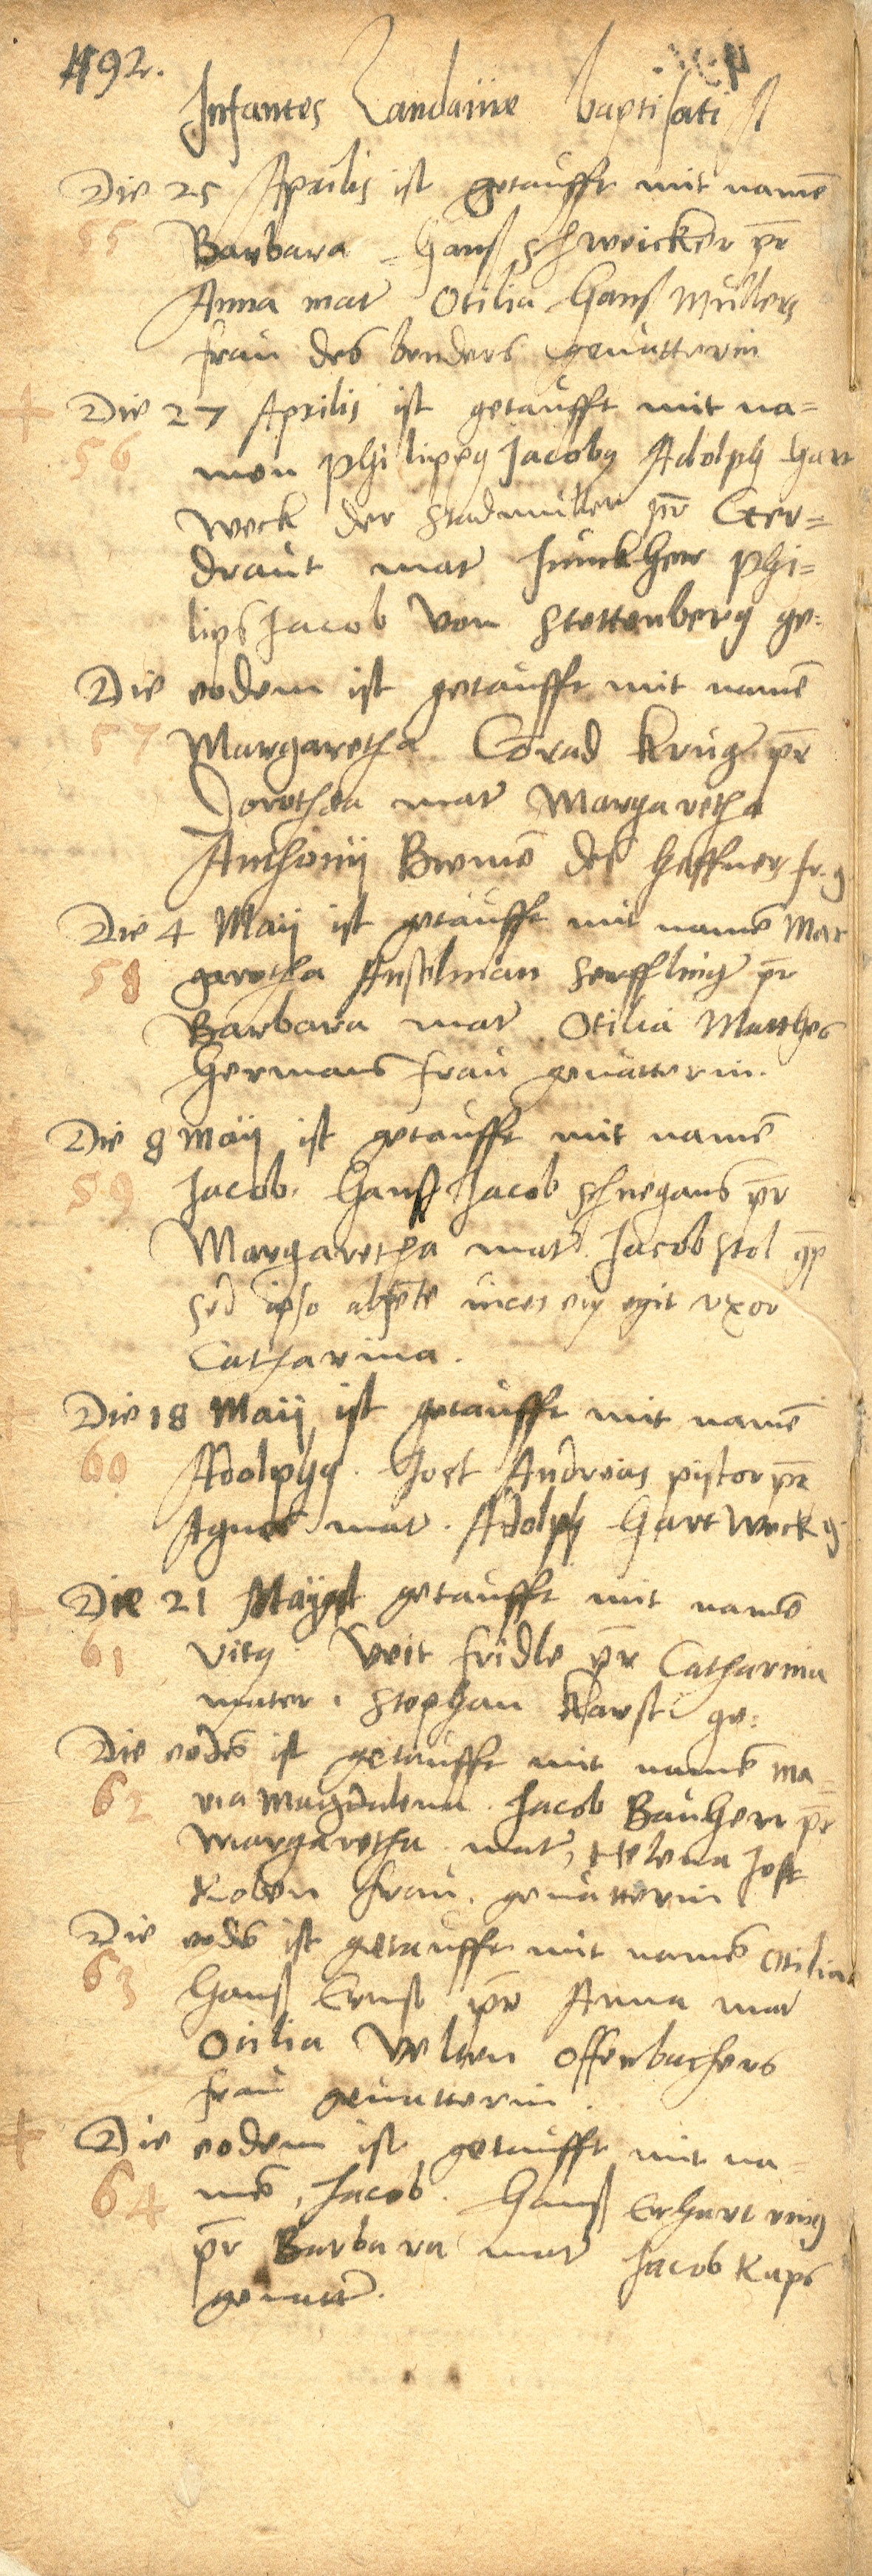 1592.
Infantes Landauiae baptisati st
Die 25 Aprilis ist getaufft mit namē
55 Barbara - Hanß Schweicker pr̄
Anna mat Otilia Hanß Mullers
frau des benders geuatterin
Die 27 Aprilis ist getaufft mit na=
56 men Philipus Jacobus Adolph Hart
weck der Stadmuller pr̄ Ger=
draut mat Junckher Phi=
lips Jacob von Stettenberg ge:
Die eodem ist getaufft mit namē
57 Margaretha Cōrad Krug pr̄
Dorothea mat Margaretha
Anthonij des Haffners fr. g
Die 4 Maij ist getaufft mit namē Mar
58 garetha Anstelman Serffling pr̄
Barbara mat Otilia Matthes
Hermans frau geuatterin.
Die 8 Maij ist getaufft mit namē
59 Jacob. Hanß Jacob Schnegans pr̄
Margaretha mat Jacob Stol gp̄
sed ipso absēte uices eiꝰ egit uxor
Catharina.
Die 18 Maij ist getaufft mit namē
60 Adolphus. Jost Andreas pistor pr̄
Agnes mat. Adolph Hartweck g
Die 21 Maij ist getaufft mit namē
61 Vitus. Veit Fridle pr̄ Catharina
mater. Stephan Karst ge:
Die eodē ist getaufft mit namē Ma=
62 ria Magdalena. Jacob Bauherr pr̄
Margaretha mat, Helena Jost
Koben frau. geuatterin
Die eodē ist getaufft mit namē Otilia
63 Hanß Ernst pr̄ Anna mat
Otilia Velten Offenbachers
frau geuatterin.
Die eodem ist getaufft mit na=
64 mē, Jacob. Hanß Erhart ring
pr̄ Barbara mat Jacob Kaps
geuatt.